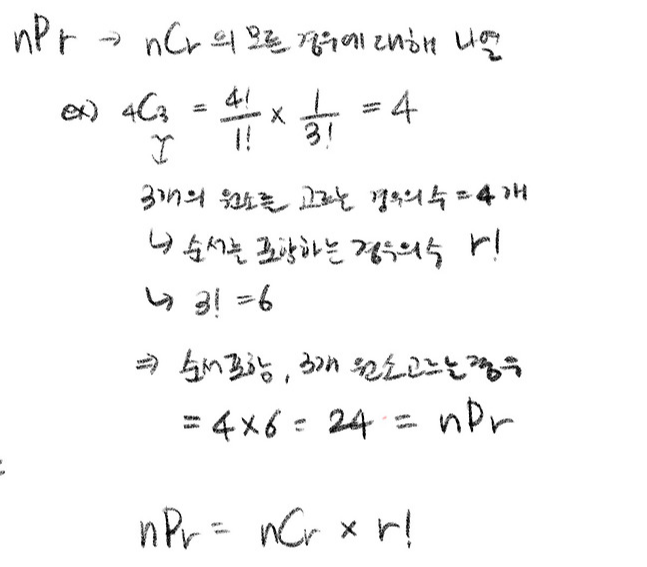 nPr → nCr 의 모든 경우에 대해 나열
ex) 4C3 = 4!/1! × 1/3! = 4
3개의 원소를 고르는 경우의 수 = 4개
↳ 순서를 포함하는 경우의 수 r!
↳ 3! = 6
⇒ 순서포함, 3개 원소 고르는 경우
= 4 × 6 = 24 = nPr
nPr = nCr × r!